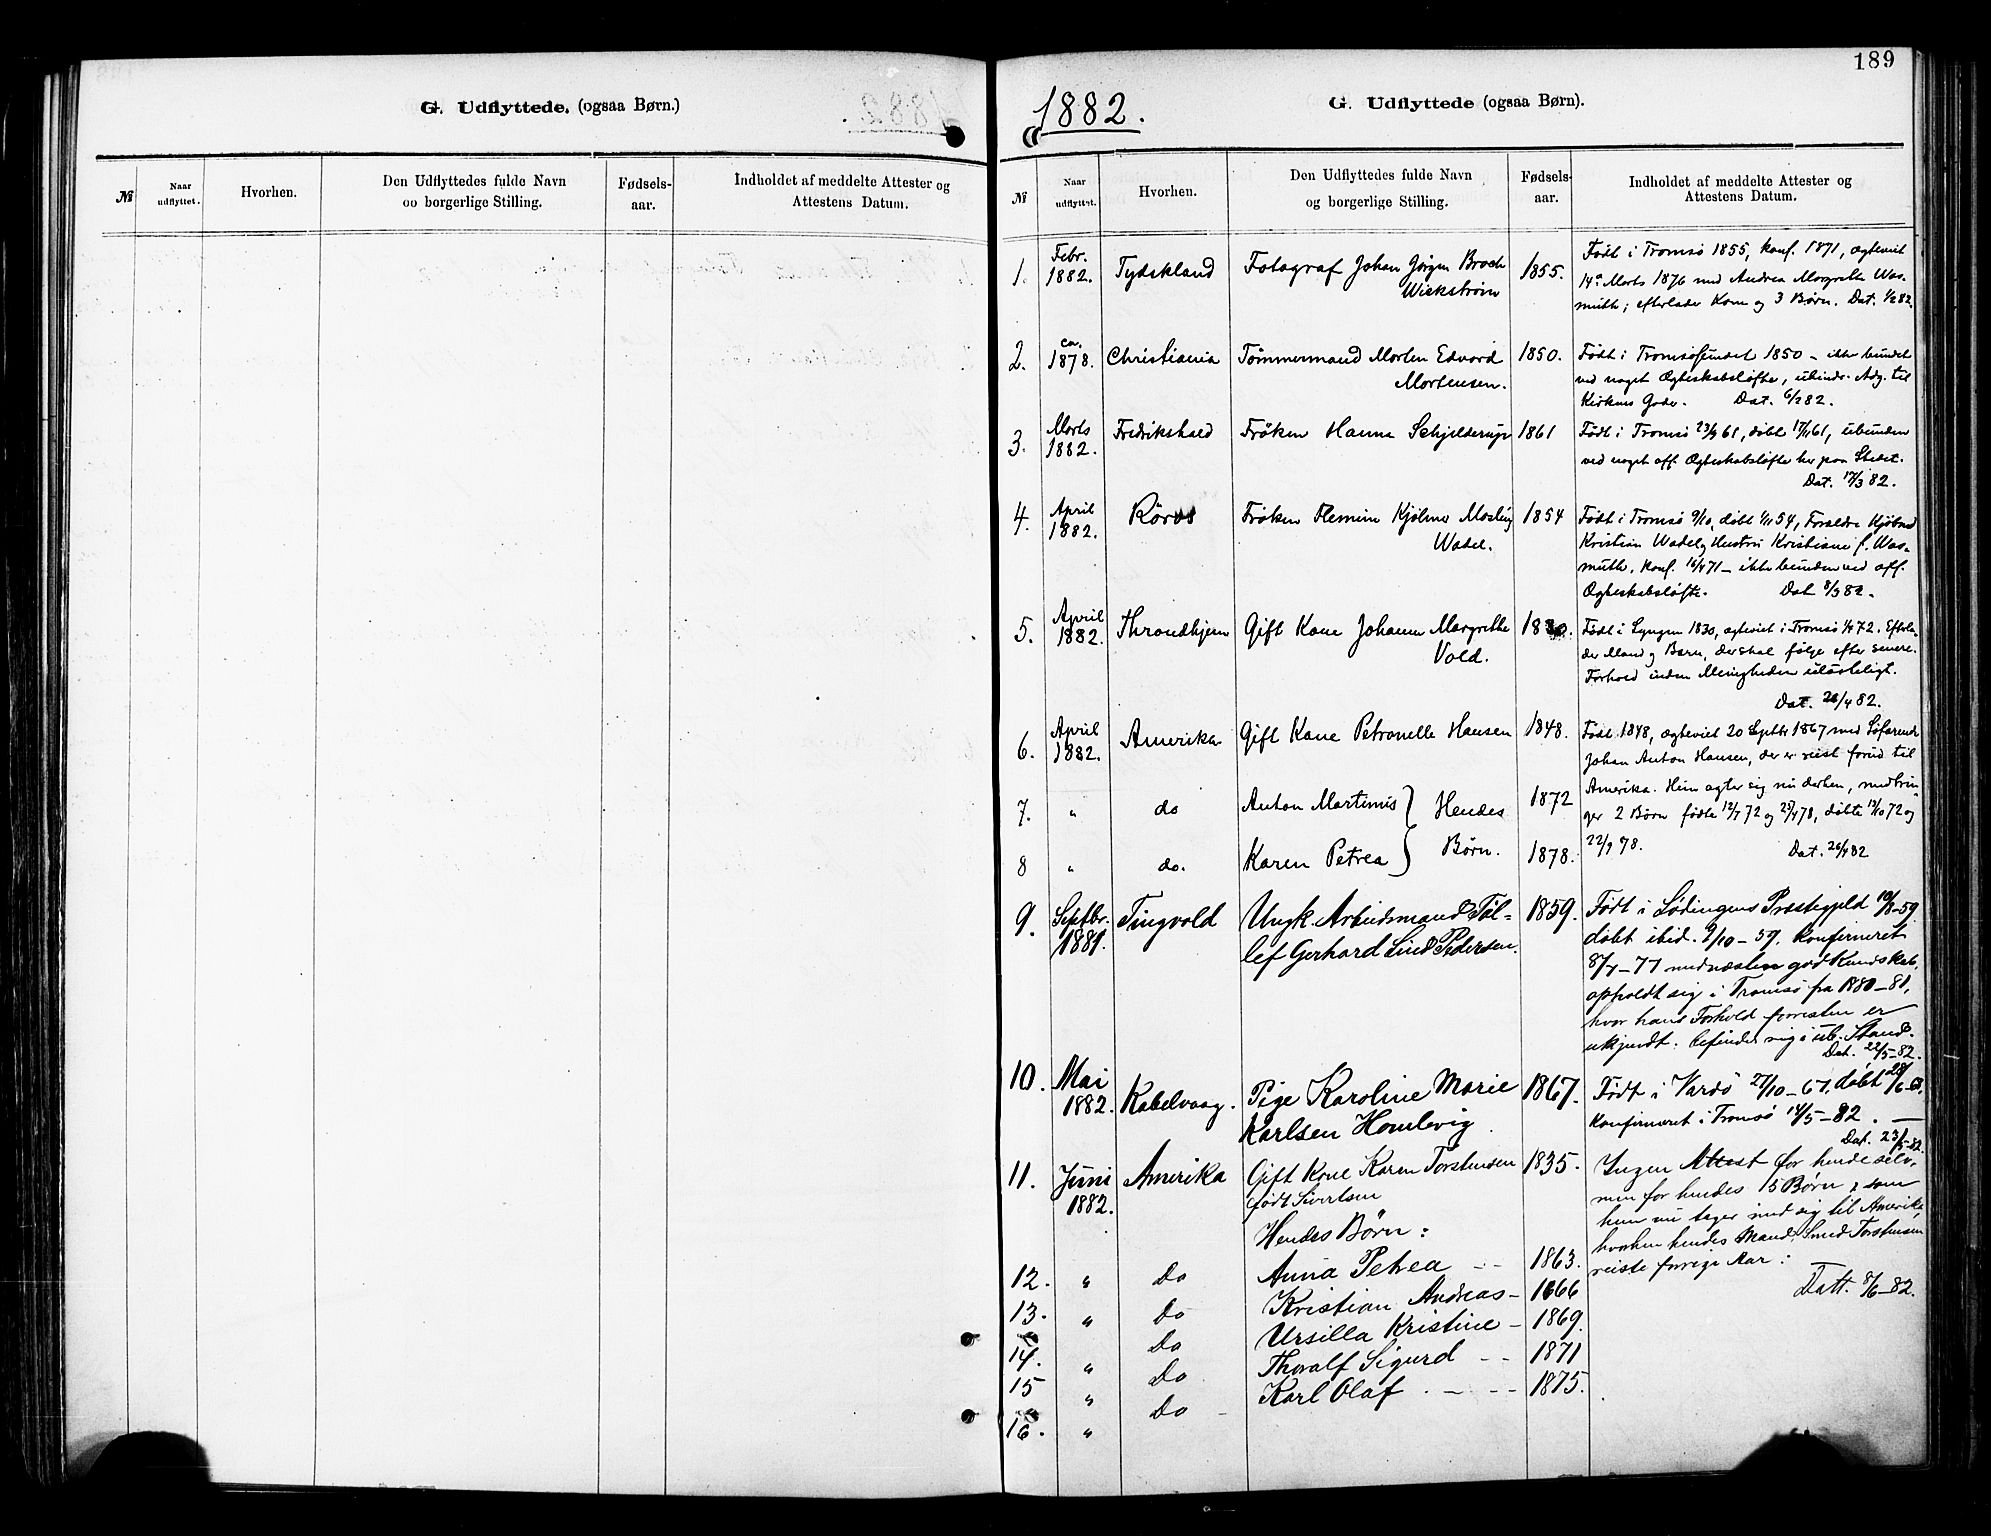 G. Udflyttede. (ogsaa Børn.)
№
Naar udflyttet.
Hvorhen.
Den Udflyttedes fulde Navn
oo borgerlige Stilling.
Fødsels-
aar.
Indholdet af meddelte Attester og
Attestens Datum.
189
1882.
G. Udflyttede (ogsaa Børn).
№
Naar udflyttet.
Hvorhen.
Den Udflyttedes fulde Navn
og borgerlige Stilling.
Fødsels-
aar.
Indholdet af meddelte Attester og
Attestens Datum.
1. Febr. 1882. Tydskland Fotograf Johan Jørgen Broch Wickstrøm 1855.
Født i Tromsø 1855, konf. 1871, ægteviet
14de Marts 1876 med Andrea Margrethe Was-
muth; efterlader Kone og 3 Børn. Dat. 1/2 82.
2. ca. 1878. Christiania Tømmermand Morten Edvard Mortensen. 1850.
Født i Tromsøsundet 1850 - ikke bundet
ved noget Ægteskabsløfte, uhindr. Adg. til
Kirkens Goder. Dat. 6/2 82.
3. Marts 1882. Fredrikshald Frøken Hanna Schjelderup 1861
Født i Tromsø 23/9 61, døbt 17/11 61, ubunden
ved noget off. Ægteskabsløfte her paa Stedet.
Dat. 17/3 82.
4. April 1882. Röros Frøken Flemine Kjølmer Wadel. 1854
Født i Tromsø 9/10, døbt 1/11 54, Forældre
Kristian Wadel og Hustru Kristiane f. Was-
muth. Konf. 16/4 71 - ikke bunden ved off.
Ægteskabsløfte. Dat 8/3 82.
5. April 1882. Throndhjem Gift Kone Johanna Margrethe Vold. 1830.
Født i Lyngen 1830, ægteviet i Tromsø 72. Efterla-
der Mand og Barn, der skal følge efter senere.
Forhold inden Menigheden ulasteligt.
Dat. 26/4 82.
6. April 1882. Amerika Gift Kone Petronelle Hansen 1848.
Født 1848, ægteviet 20 Septbr 1867 med Søfarende
Johan Anton Hansen, der er reist forud til
Amerika. Hun agter sig nu derhen, medbrin-
7. " do Anton Martinus } Hendes 1872
ger 2 Børn fødte 12/7 72 og 25/4 78, døbte 13/10 72 og
8 " do. Karen Petrea } Børn. 1878.
22/9 78. Dat. 26/4 82
9. Septbr. 1881. Tingvold Ungk. Arbeidsmand Tøl-
lef Gerhard Lind Pedersen. 1859.
Født i Lødingens Præstegjeld 10/8-59
døbt ibid. 9/10-59. Konfirmeret
8/7-77 med næsten god Kundskab,
opholdt sig i Tromsø fra 1880-81,
hvor hans Forhold forresten er
ukjendt. befinder sig i ub. Stand.
Dat. 22/5-82.
10. Mai 1882. Kabelvaag. Pige Karoline Marie
Karlsen Homlevig. 1867.
Født i Vardö 27/10-67. døbt 28/6-68.
Konfirmeret i Tromsö 14/5-82.
Dat. 23/5-82.
11. Juni 1882. Amerika Gift Kone Karen Torstensen
født Sivertsen 1835.
Ingen Attest for hende selv,
men for hendes 5 Børn, som
hun nu tager med sig til Amerika,
hvorhen hendes Mand, Smed Torstensen
reiste forrige Aar:
Datt. 8/6-82.
Hendes Børn:
12. " Do Anna Petrea 1863.
13. " Do Kristian Andreas 1866
14. " Do Ursilla Kristine 1869.
15 " Do Thoralf Sigurd 1871
16. " Do Karl Olaf 1875.